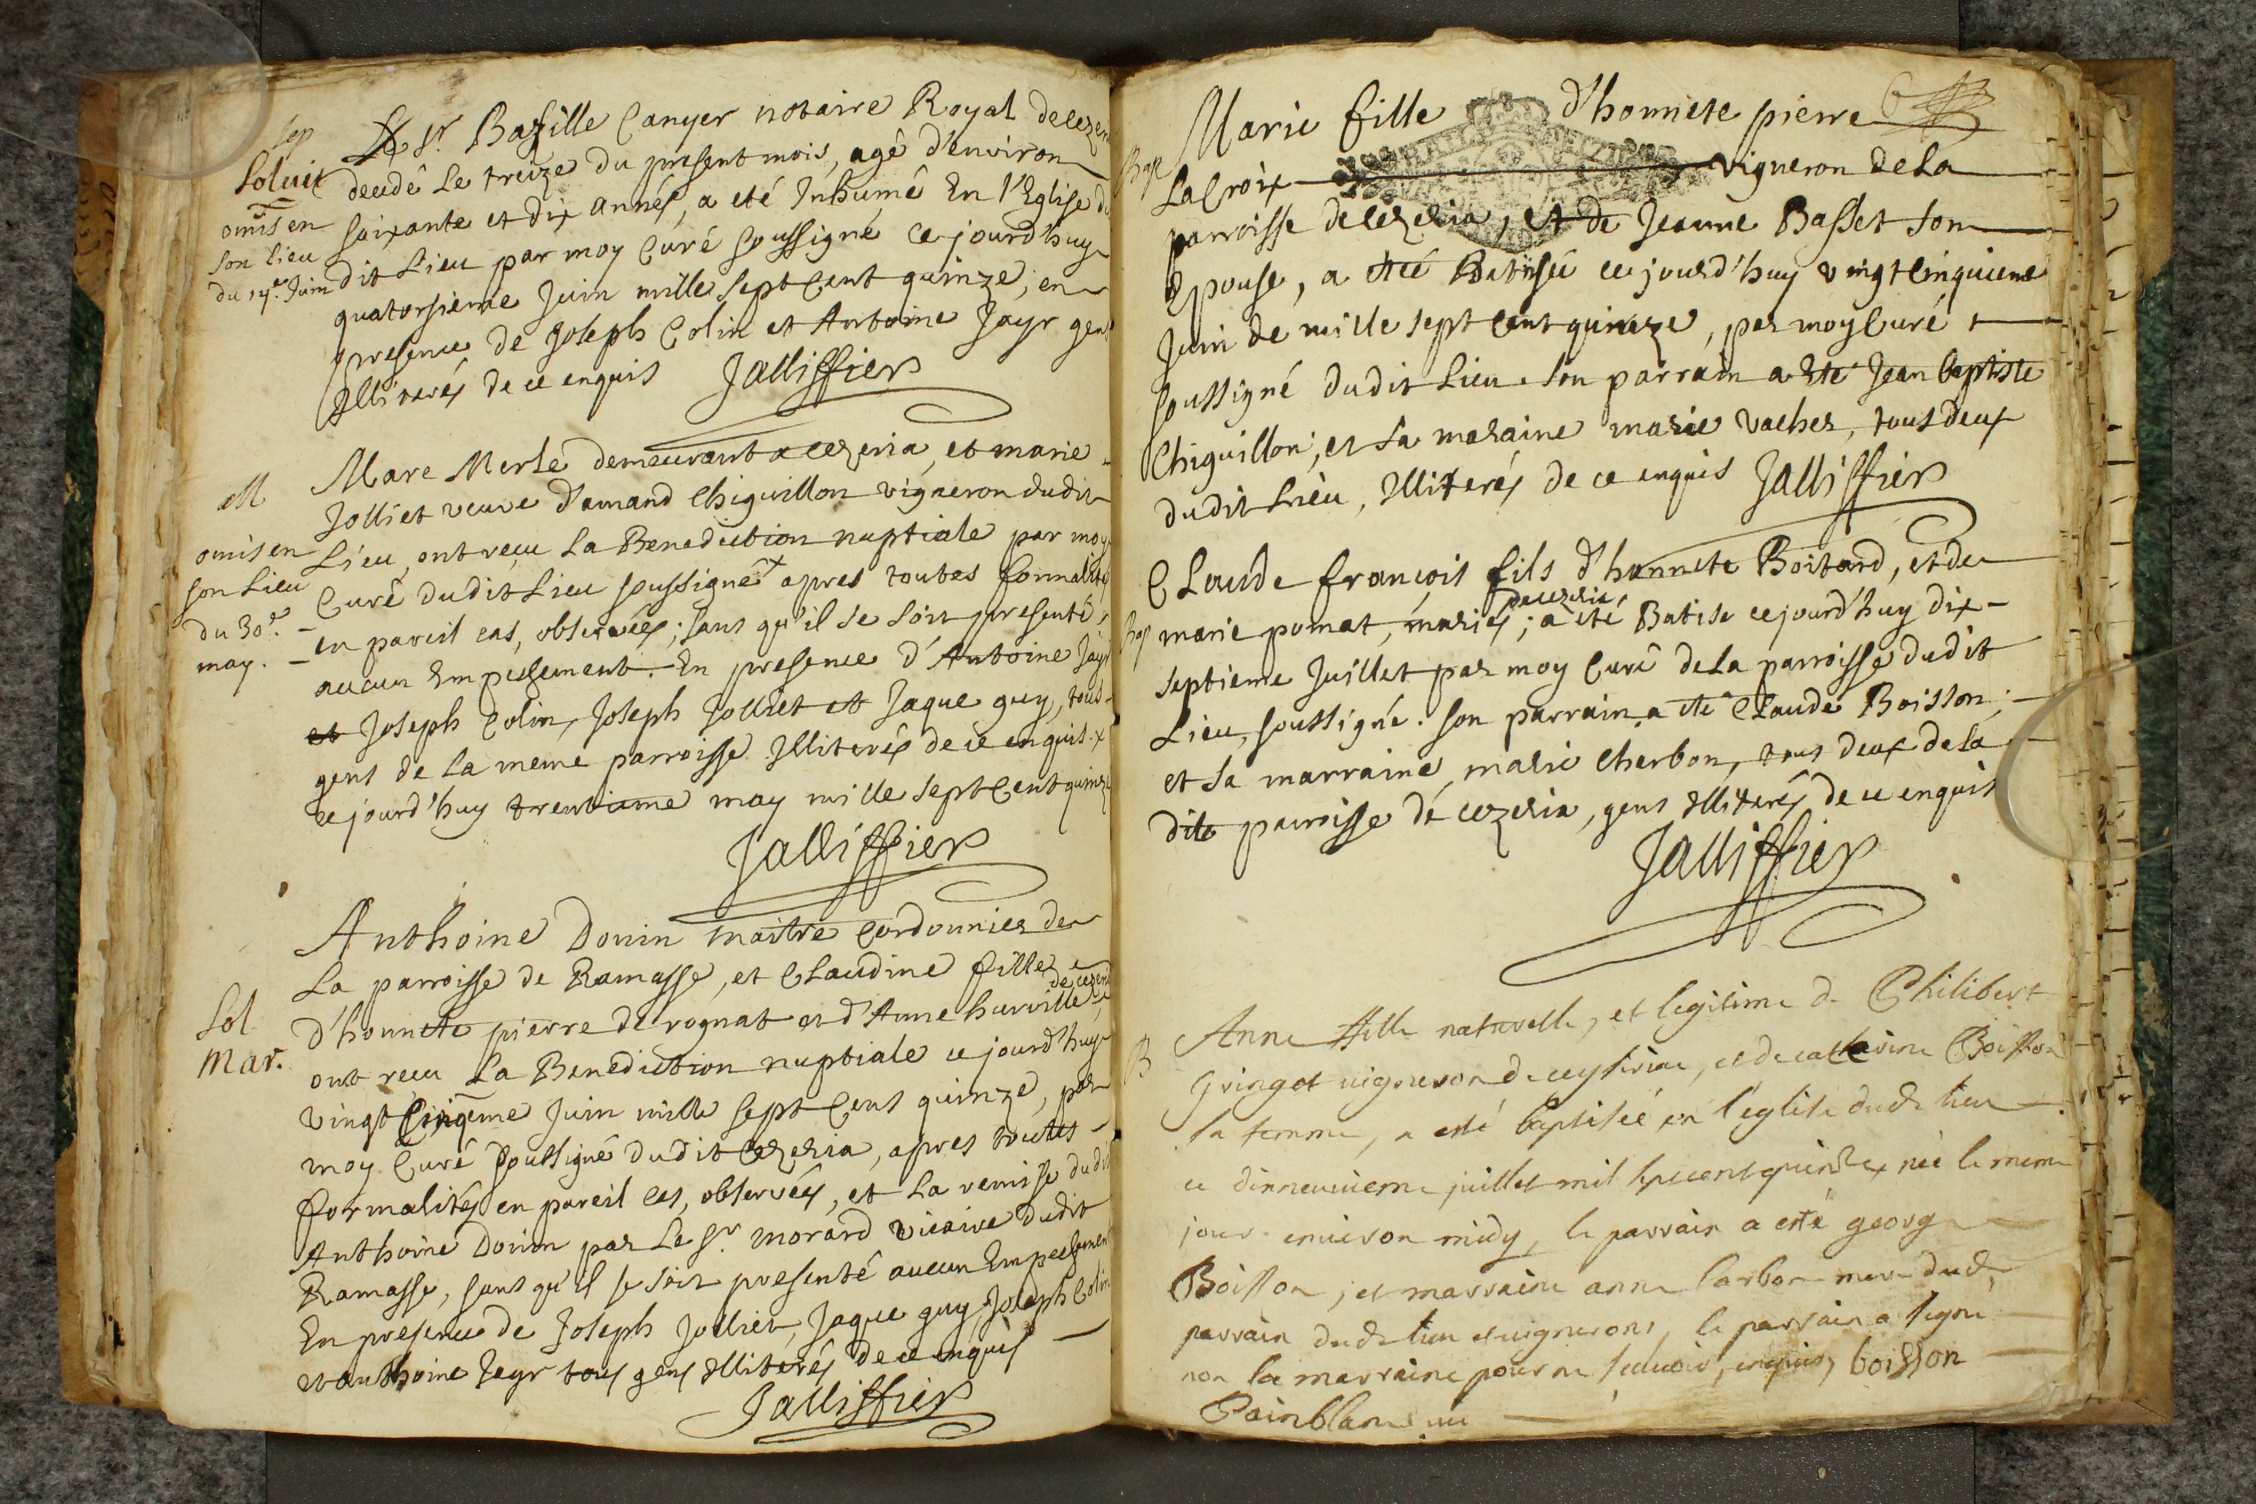 sep
Solvit
omis en
son lieu
du 14e. Juin
Le Sr. Bazille Canyer notaire Royal de cezeria
decedé Le treize du present mois, agé d'environ
soixante et dix années, a eté Inhumé En l'Eglise du
dit Lieu par moy Curé soussigné ce jourd'huy
quatorsieme Juin mille sept Cent quinze, en
presence de Joseph Colin et Antoine Jayr gens
Illiterés de ce enquis Jalliffier
M
omis en
son Lieu
du 30e.
may.
Marc Merle demeurant a cezeria, et marie
Jolliet veuve d'amand Chiguillon vigneron dudit
Lieu, ont reçu La Benediction nuptiale par moy
Curé dudit Lieu soussigné + apres toutes formalités
en pareil cas, observées; sans qu'il se soit presenté
aucun Empechement. En presence d'Antoine Jayr
et Joseph Colin, Joseph Jolliet et Jaque guy, tous
gens de la meme parroisse Illiterés de ce enquis. +
ce jourd'huy trentieme may mille sept Cent quinze
Jalliffier
Sol
Mar.
Anthoine Donin maitre Cordonnier de
La parroisse de Ramasse, et Claudine fille
de cezeria
d'honnete pierre de rognat et d'Anne hurville,
ont reçu La Benediction nuptiale ce jourd'huy
vingt Cinqeme Juin mille sept Cent quinze, par
moy Curé soussigné dudit Cezeria, apres toutes
formalités en pareil cas, observées, et La remisse dudit
Anthoine Donin par Le Sr. morard vicaire dudit
Ramasse, sans qu'il se soit presenté aucun Empechement
En presence de Joseph Jolliet, Jaque guy, Joseph Colin
et anthoine Jayr tous gens Illiterés de ce enquis
Jalliffier
Bap
Marie fille d'honnete pierre
LaCroix vigneron de La
parroisse de cezeria, et de Jeanne Basset son
Epouse, a eté Batisée ce jourd'huy vingt cinquieme
Juin de mille sept Cent quinze, par moy Curé
soussigné dudit Lieu. Son parrain a Eté Jean baptiste
Chiguillon, et sa maraine marie vacher, tous deux
dudit Lieu, Illiterés de ce enquis Jalliffier
Bap
Claude françois fils d'honnete Boitard, et de
de cezeria,
marie pomat, mariés; a eté Batise ce jourd'huy dix-
septieme Juillet par moy Curé de La parroisse dudit
Lieu, soussigné. son parrain a eté Claude Boisson;
et sa marraine marie Cherbon, tous deux de la
dite parroisse de cezeria, gens Illiterés de ce enquis
Jalliffier
B
Anne fille naturelle, et legitime de Philibert
Gringet vigneron de ceyseriae, et de catterine Boisson
sa femme, a esté baptisée en l'église dudt lieu
ce dixneuvieme juillet mil sept cent quinze, née le meme
jour environ midy, le parrain a esté george
Boisson, et marraine anne Carbon mere dudt
parrain dudt lieu et vignerons, le parrain a signé
non la marraine pour ne scavoir, enquis, boisson
Painblanc